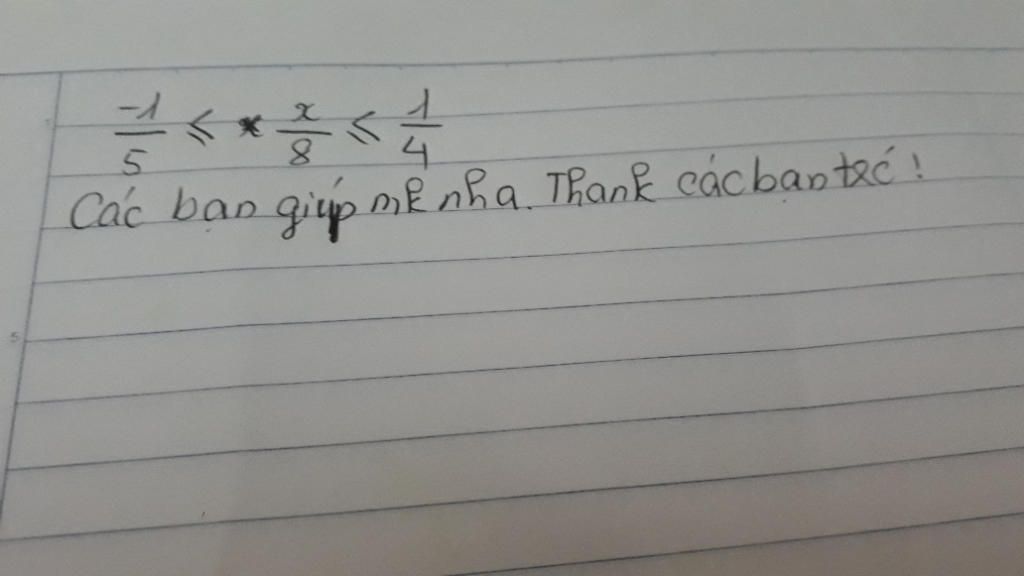 -1/5 ⩽ x/8 ⩽ 1/4
Các bạn giúp mk nha. Thank các bạn trc!